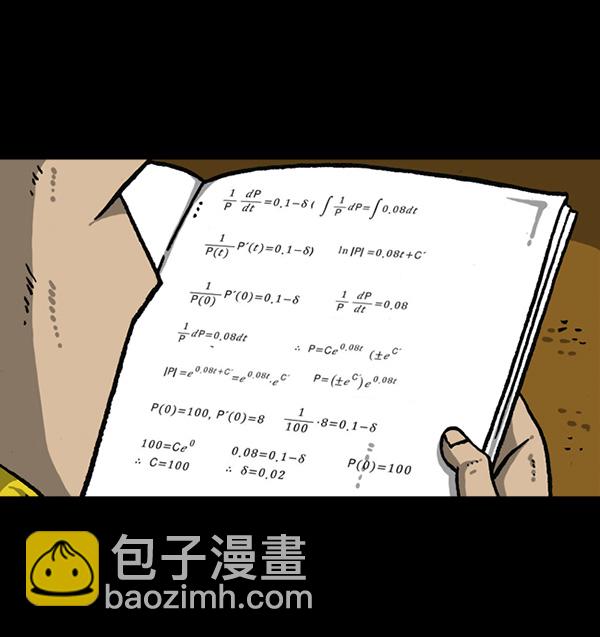 1/P dP/dt=0.1−δ ( ∫ 1/P dP=∫0.08dt
1/P(t) P′(t)=0.1−δ) ln|P|=0.08t+C′
1/P(0) P′(0)=0.1−δ 1/P dP/dt=0.08
1/P dP=0.08dt ∴ P=Ce^0.08t (±e^C′
|P|=e^0.08t+C′=e^0.08t·e^C′ P=(±e^C′)e^0.08t
P(0)=100, P′(0)=8 1/100 ·8=0.1−δ
100=Ce^0 0.08=0.1−δ P(0)=100
∴ C=100 ∴ δ=0.02
包子漫畫
baozimh.com